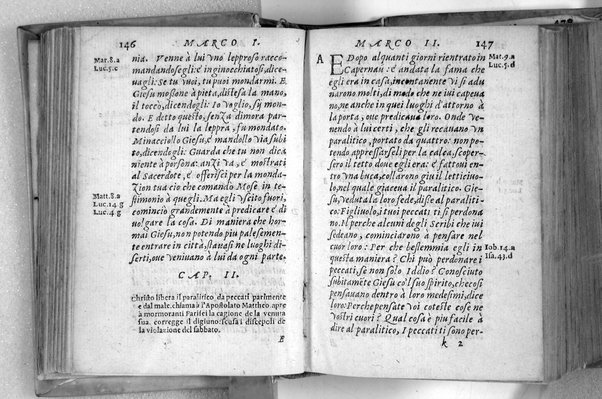 146 MARCO I.
Mar. 8. a
Luc. 5. c
nia. Venne à lui vno lepproso racco-
mandandosegli: è inginocchiatosi, dice-
uagli: Se tu vuoi, tu puoi mondarmi. E
Giesu mossone à pieta, distesa la mano,
il toccò, dicendogli: Io voglio, sij mon-
do. E detto questo, senza dimora par-
tendosi da lui la leppra, fu mondato.
Minacciollo Giesu, è mandollo via subi-
to, dicendogli: Guarda che tu non dica
niente à persona: anzi va, è mostrati
al Sacerdote, è offerisci per la monda-
Matt. 8. a
zion tua cio che comando Mose in te-
Luc. 14. g
stimonio à quegli. Ma egli vscito fuori,
Luc. 4. g
comincio grandemente à predicare è di
uolgare la cosa. Di maniera che hor-
mai Giesu, non potendo piu palesemen-
te entrare in città, stauasi ne luoghi di-
serti, oue veniuano à lui da ogni parte.
CAP. II.
Christo libera il paralitico, da peccati parimente
e dal male. chiama à l'Apostolato Mattheo. apre
à mormoranti Farisei la cagione de la venuta
sua. corregge il digiuno: scusa i discepoli de
la violazione del sabbato.
E
MARCO II. 147
Mat. 9. a
Luc. 5. d
A
E Dopo alquanti giorni rientrato in
Capernau: è andata la fama che
egli era in casa, incontanente vi si adu
narono molti, di modo che ne iui capeua
no, ne anche in quei luoghi d'attorno à
la porta, oue predicaua loro. Onde ve-
nendo à lui certi, che gli recauano vn
paralitico, portato da quattro: non po-
tendo appressarseli per la calca, scoper-
sero il tetto doue egli era: è fattoui en-
tro vna buca, collarono giu il letticiuo-
lo, nel quale giaceua il paralitico. Gie-
su, veduta la loro fede, disse al paralitico:
Figliuolo, i tuoi peccati ti si perdona
no. Il perche alcuni degli Scribi che iui
sedeano, cominciarono à pensare nel
Iob. 14. a
cuor loro: Per che bestemmia egli in
Isa. 43. d
questa maniera? Chi può perdonare i
peccati, se non solo Iddio? Conosciuto
subitamẽte Giesu co'l suo spirito, che cosi
pensauano dentro à loro medesimi, dice
loro: Perche pensate voi coteste cose ne
vostri cuori? Qual cosa è piu facile à
dire al paralitico, I peccati ti sono per-
k 2